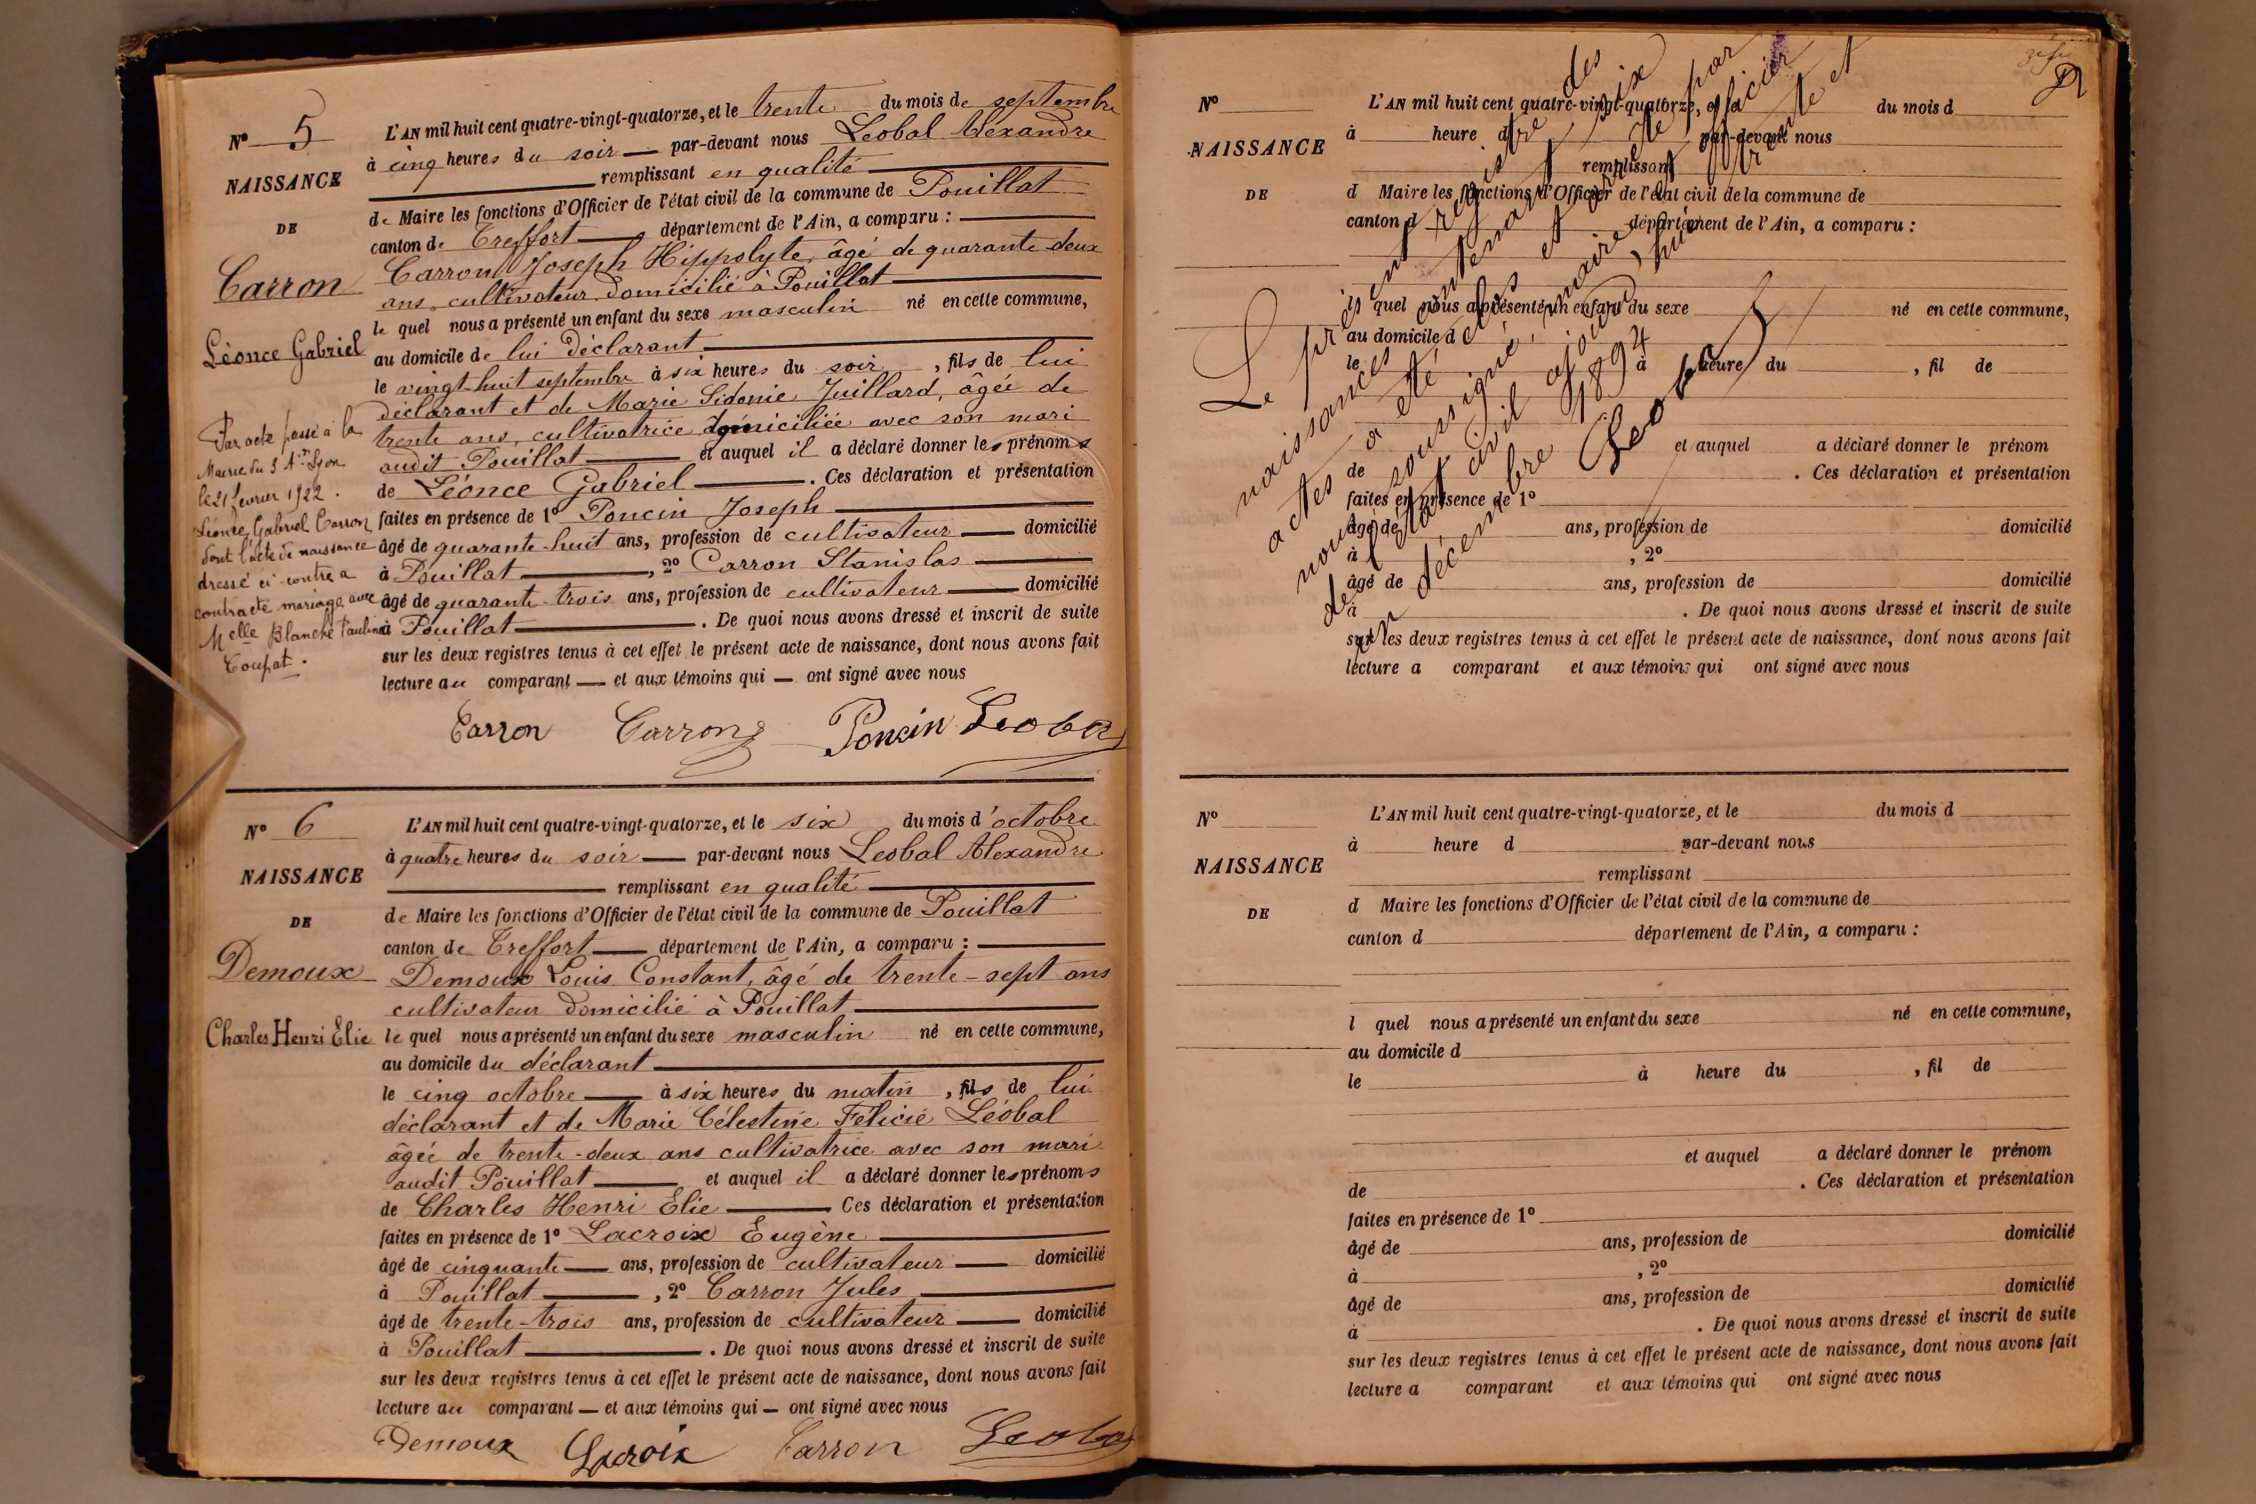 N° 5
NAISSANCE
DE
Carron
Léonce Gabriel
L'AN mil huit cent quatre-vingt-quatorze, et le trente du mois de septembre
à cinq heures du soir — par-devant nous Leobal Alexandre
remplissant en qualité
de Maire les fonctions d'Officier de l'état civil de la commune de Pouillat
canton de Treffort — département de l'Ain, a comparu :
Carron Joseph Hippolyte, âgé de quarante-deux
ans, cultivateur domicilié à Pouillat
le quel nous a présenté un enfant du sexe masculin né en cette commune,
au domicile de lui déclarant
le vingt-huit septembre à six heures du soir, fils de lui
déclarant et de Marie Sidonie Juillard, âgée de
trente ans, cultivatrice domiciliée avec son mari
audit Pouillat — et auquel il a déclaré donner les prénoms
de Léonce Gabriel — . Ces déclaration et présentation
faites en présence de 1° Poncin Joseph
âgé de quarante-huit ans, profession de cultivateur — domicilié
à Pouillat —, 2° Carron Stanislas
âgé de quarante-trois ans, profession de cultivateur — domicilié
à Pouillat — . De quoi nous avons dressé et inscrit de suite
sur les deux registres tenus à cet effet le présent acte de naissance, dont nous avons fait
lecture au comparant — et aux témoins qui — ont signé avec nous
Carron Carron Poncin Leobal
Par acte passé à la
Mairie du 3 Art Lyon
le 21 fevrier 1922.
Léonce Gabriel Carron
dont l'acte de naissance
dressé ci-contre a
contracté mariage avec
Melle Blanche Pauline
Coupat.
N° 6
NAISSANCE
DE
Demoux
Charles Henri Elie
L'AN mil huit cent quatre-vingt-quatorze, et le six du mois d'octobre
à quatre heures du soir — par-devant nous Leobal Alexandre
remplissant en qualité
de Maire les fonctions d'Officier de l'état civil de la commune de Pouillat
canton de Treffort — département de l'Ain, a comparu :
Demoux Louis Constant, âgé de trente-sept ans
cultivateur domicilié à Pouillat
le quel nous a présenté un enfant du sexe masculin né en cette commune,
au domicile du déclarant
le cinq octobre — à six heures du matin, fils de lui
déclarant et de Marie Célestine Félicie Léobal
âgée de trente-deux ans cultivatrice avec son mari
audit Pouillat — et auquel il a déclaré donner les prénoms
de Charles Henri Elie — Ces déclaration et présentation
faites en présence de 1° Lacroix Eugène
âgé de cinquante — ans, profession de cultivateur — domicilié
à Pouillat —, 2° Carron Jules
âgé de trente-trois ans, profession de cultivateur — domicilié
à Pouillat — . De quoi nous avons dressé et inscrit de suite
sur les deux registres tenus à cet effet le présent acte de naissance, dont nous avons fait
lecture au comparant — et aux témoins qui — ont signé avec nous
Demoux Lacroix Carron Leobal
N°
NAISSANCE
DE
L'AN mil huit cent quatre-vingt-quatorze, et le du mois d
à heure d par-devant nous
remplissant
d Maire les fonctions d'Officier de l'état civil de la commune de
canton d département de l'Ain, a comparu :
l quel nous a présenté un enfant du sexe né en cette commune,
au domicile d
le à heure du , fil de
et auquel a déclaré donner le prénom
de . Ces déclaration et présentation
faites en présence de 1°
âgé de ans, profession de domicilié
à , 2°
âgé de ans, profession de domicilié
à . De quoi nous avons dressé et inscrit de suite
sur les deux registres tenus à cet effet le présent acte de naissance, dont nous avons fait
lecture a comparant et aux témoins qui ont signé avec nous
Le présent registre des
naissances contenant six
actes a été clos et arrêté par
nous soussigné, maire, officier
de l'état civil, ajourd'hui trente et
un décembre 1894
Leobal
N°
NAISSANCE
DE
L'AN mil huit cent quatre-vingt-quatorze, et le du mois d
à heure d par-devant nous
remplissant
d Maire les fonctions d'Officier de l'état civil de la commune de
canton d département de l'Ain, a comparu :
l quel nous a présenté un enfant du sexe né en cette commune,
au domicile d
le à heure du , fil de
et auquel a déclaré donner le prénom
de . Ces déclaration et présentation
faites en présence de 1°
âgé de ans, profession de domicilié
à , 2°
âgé de ans, profession de domicilié
à . De quoi nous avons dressé et inscrit de suite
sur les deux registres tenus à cet effet le présent acte de naissance, dont nous avons fait
lecture a comparant et aux témoins qui ont signé avec nous